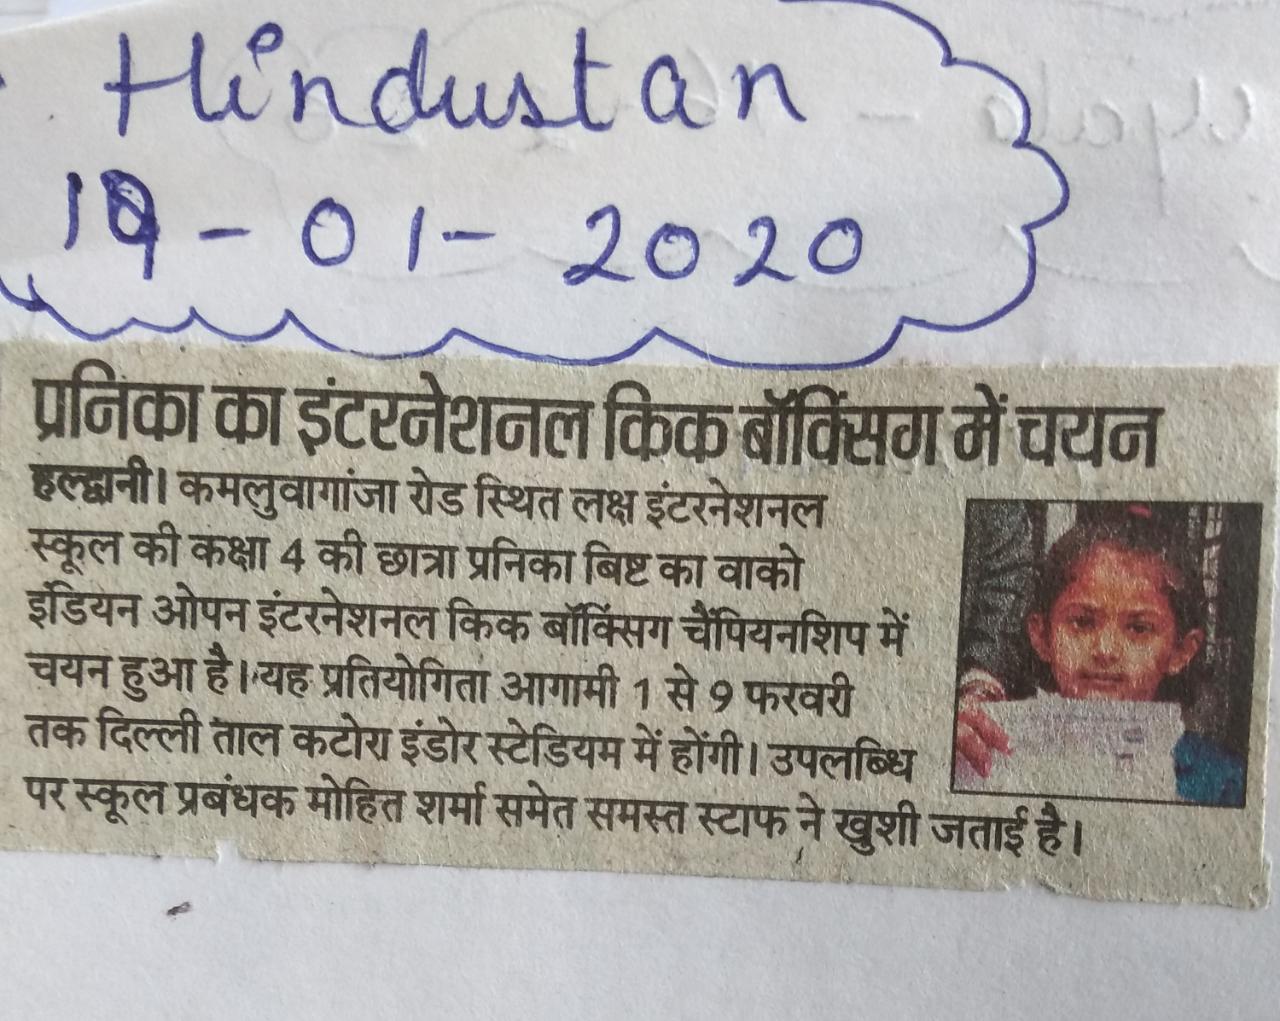 Hindustan
19-01-2020
प्रनिका का इंटरनेशनल किक बॉक्सिंग में चयन
हल्द्वानी। कमलुवागांजा रोड स्थित लक्ष इंटरनेशनल
स्कूल की कक्षा 4 की छात्रा प्रनिका बिष्ट का वाको
इंडियन ओपन इंटरनेशनल किक बॉक्सिंग चैंपियनशिप में
चयन हुआ है। यह प्रतियोगिता आगामी 1 से 9 फरवरी
तक दिल्ली ताल कटोरा इंडोर स्टेडियम में होंगी। उपलब्धि
पर स्कूल प्रबंधक मोहित शर्मा समेत समस्त स्टाफ ने खुशी जताई है।